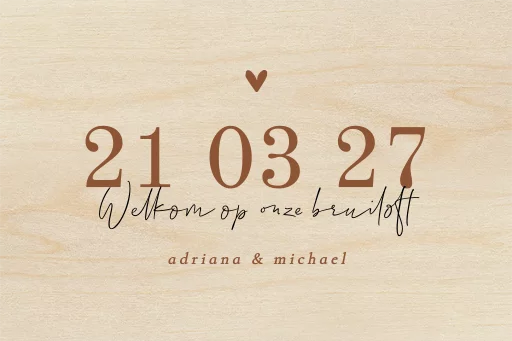 21 03 27
Welkom op onze bruiloft
adriana & michael